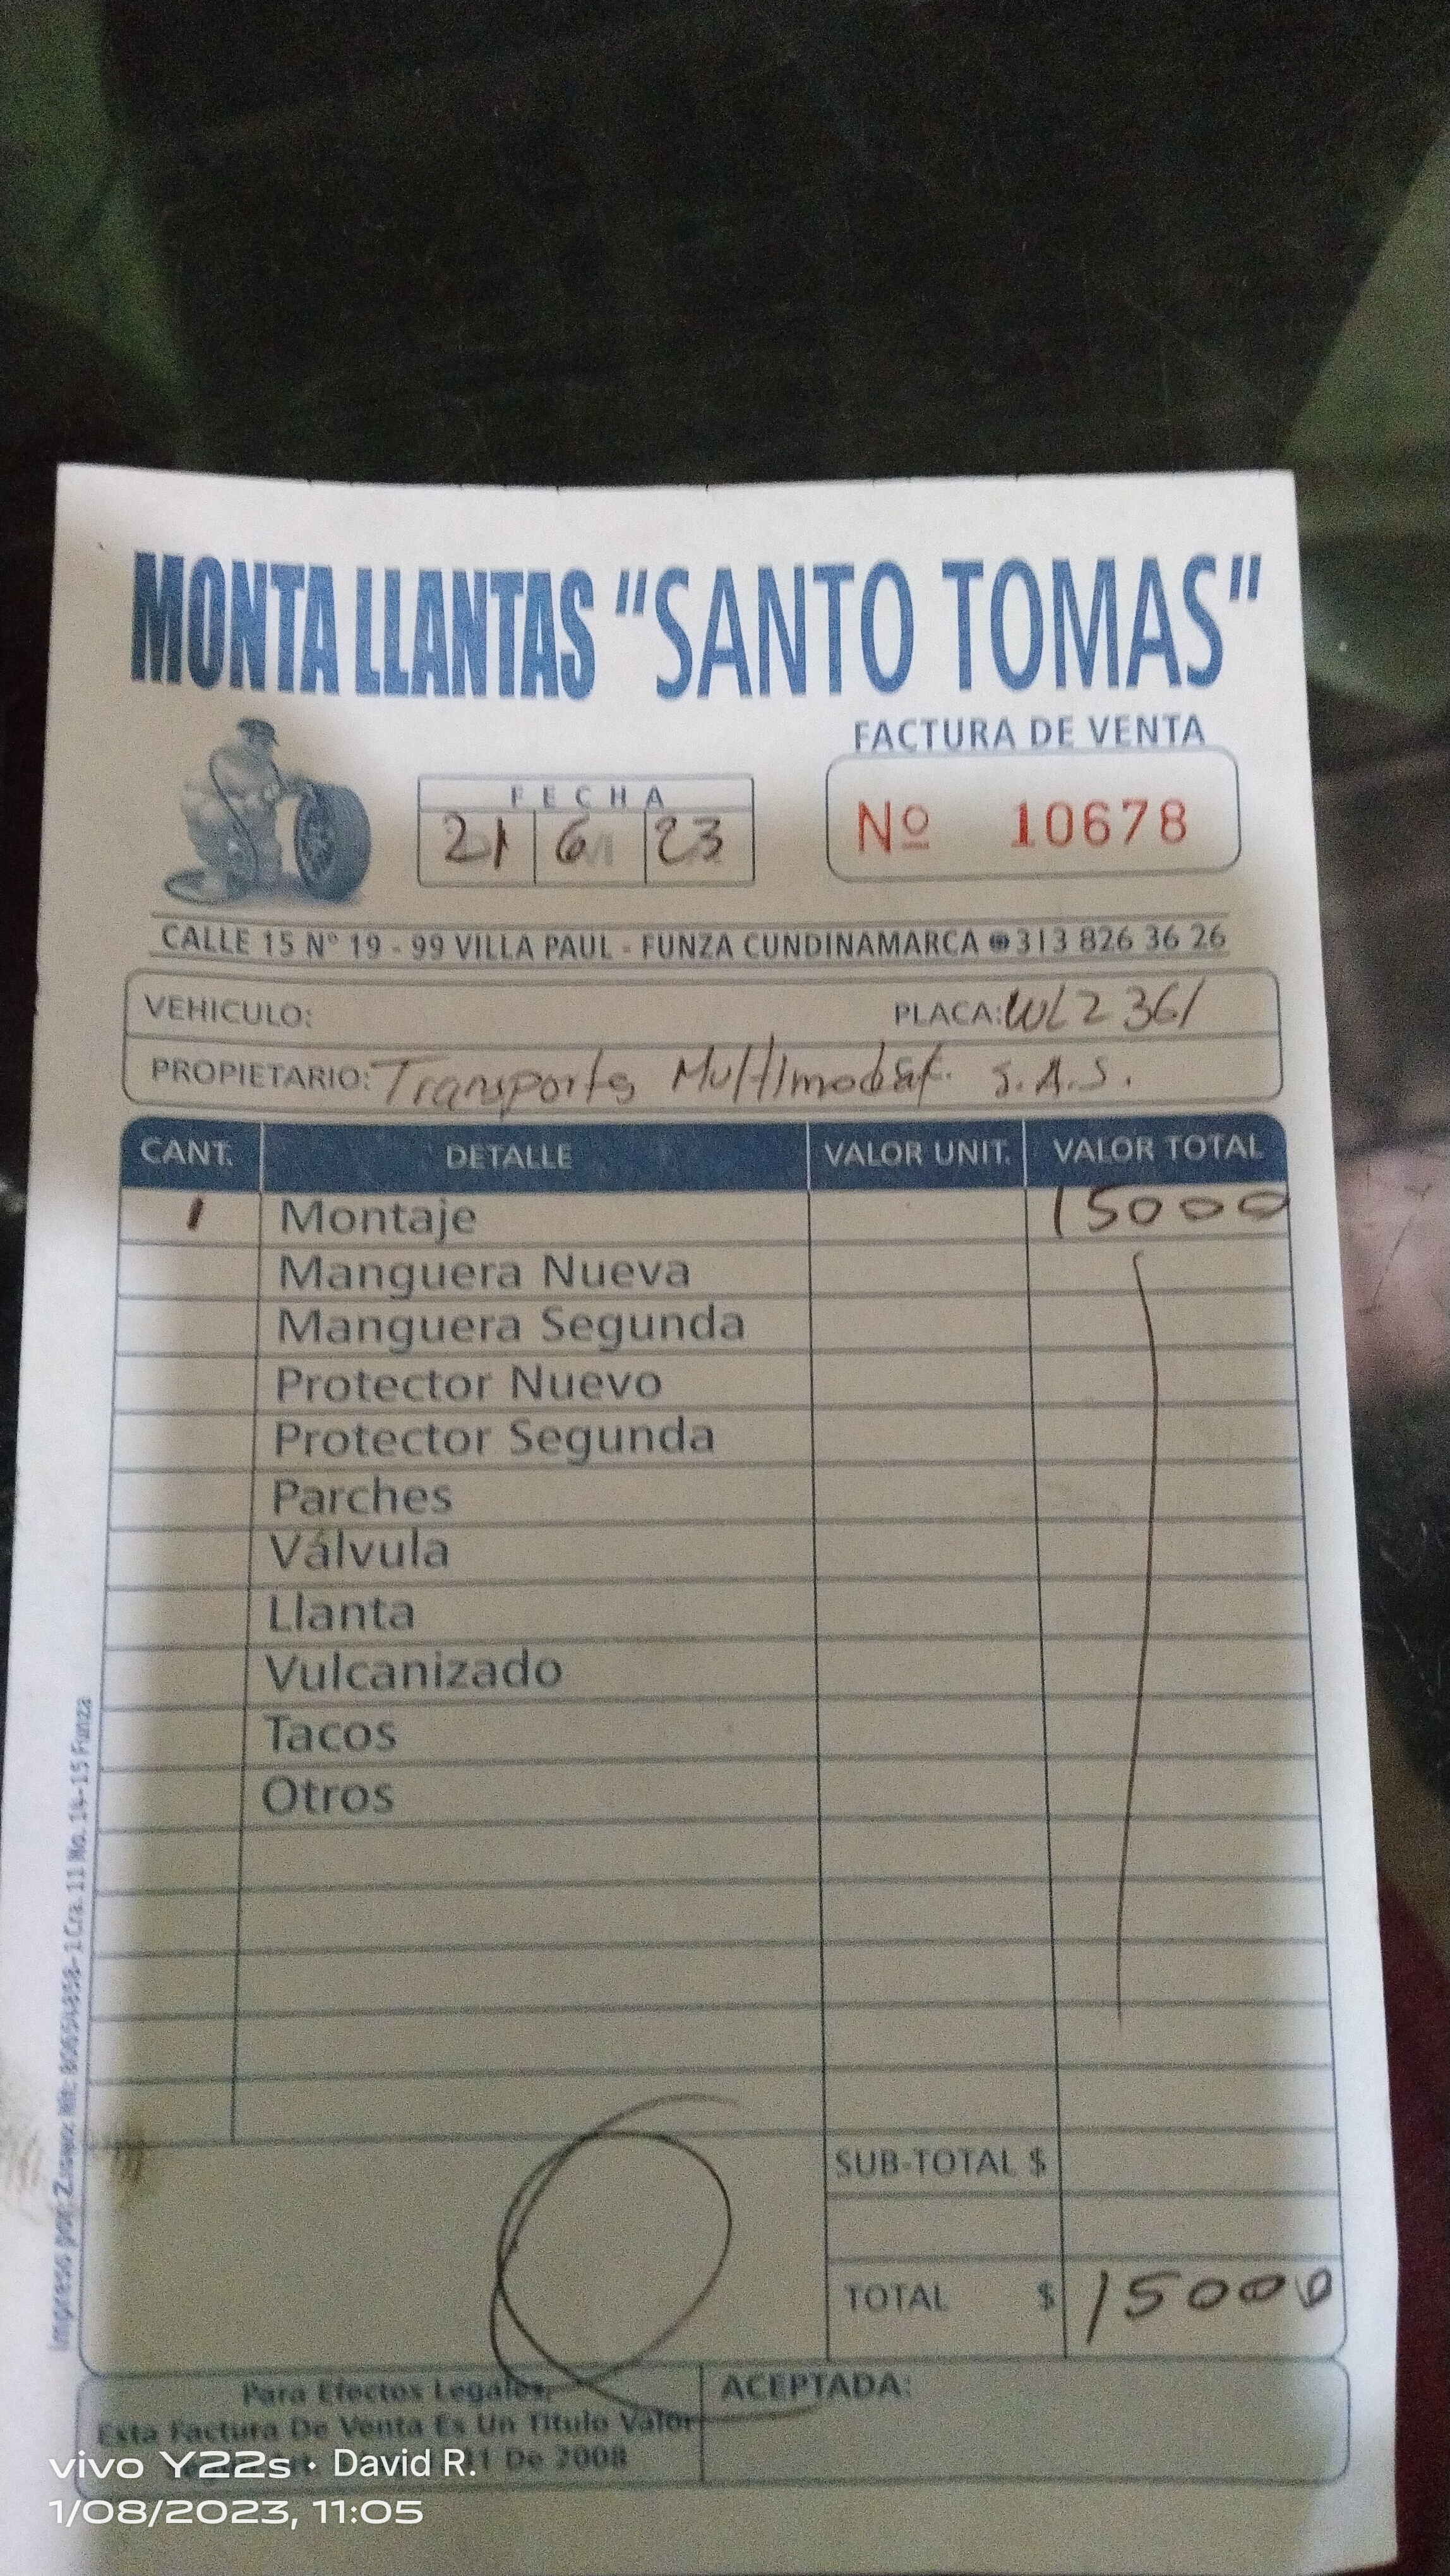 MONTA LLANTAS "SANTO TOMAS"
FACTURA DE VENTA
FECHA
21 6 23
Nº 10678
CALLE 15 N° 19 - 99 VILLA PAUL - FUNZA CUNDINAMARCA ☎ 313 826 36 26
VEHICULO: PLACA: WLZ 361
PROPIETARIO: Transportes Multimodal. S.A.S.
CANT. DETALLE VALOR UNIT. VALOR TOTAL
1 Montaje 15000
Manguera Nueva
Manguera Segunda
Protector Nuevo
Protector Segunda
Parches
Válvula
Llanta
Vulcanizado
Tacos
Otros
SUB-TOTAL $
TOTAL $ 15000
Para Efectos Legales,
Esta Factura De Venta Es Un Titulo Valor
De 2008
ACEPTADA:
Impreso por: Nit. Cra. 11 No. 14-15 Funza
vivo Y22s · David R.
1/08/2023, 11:05